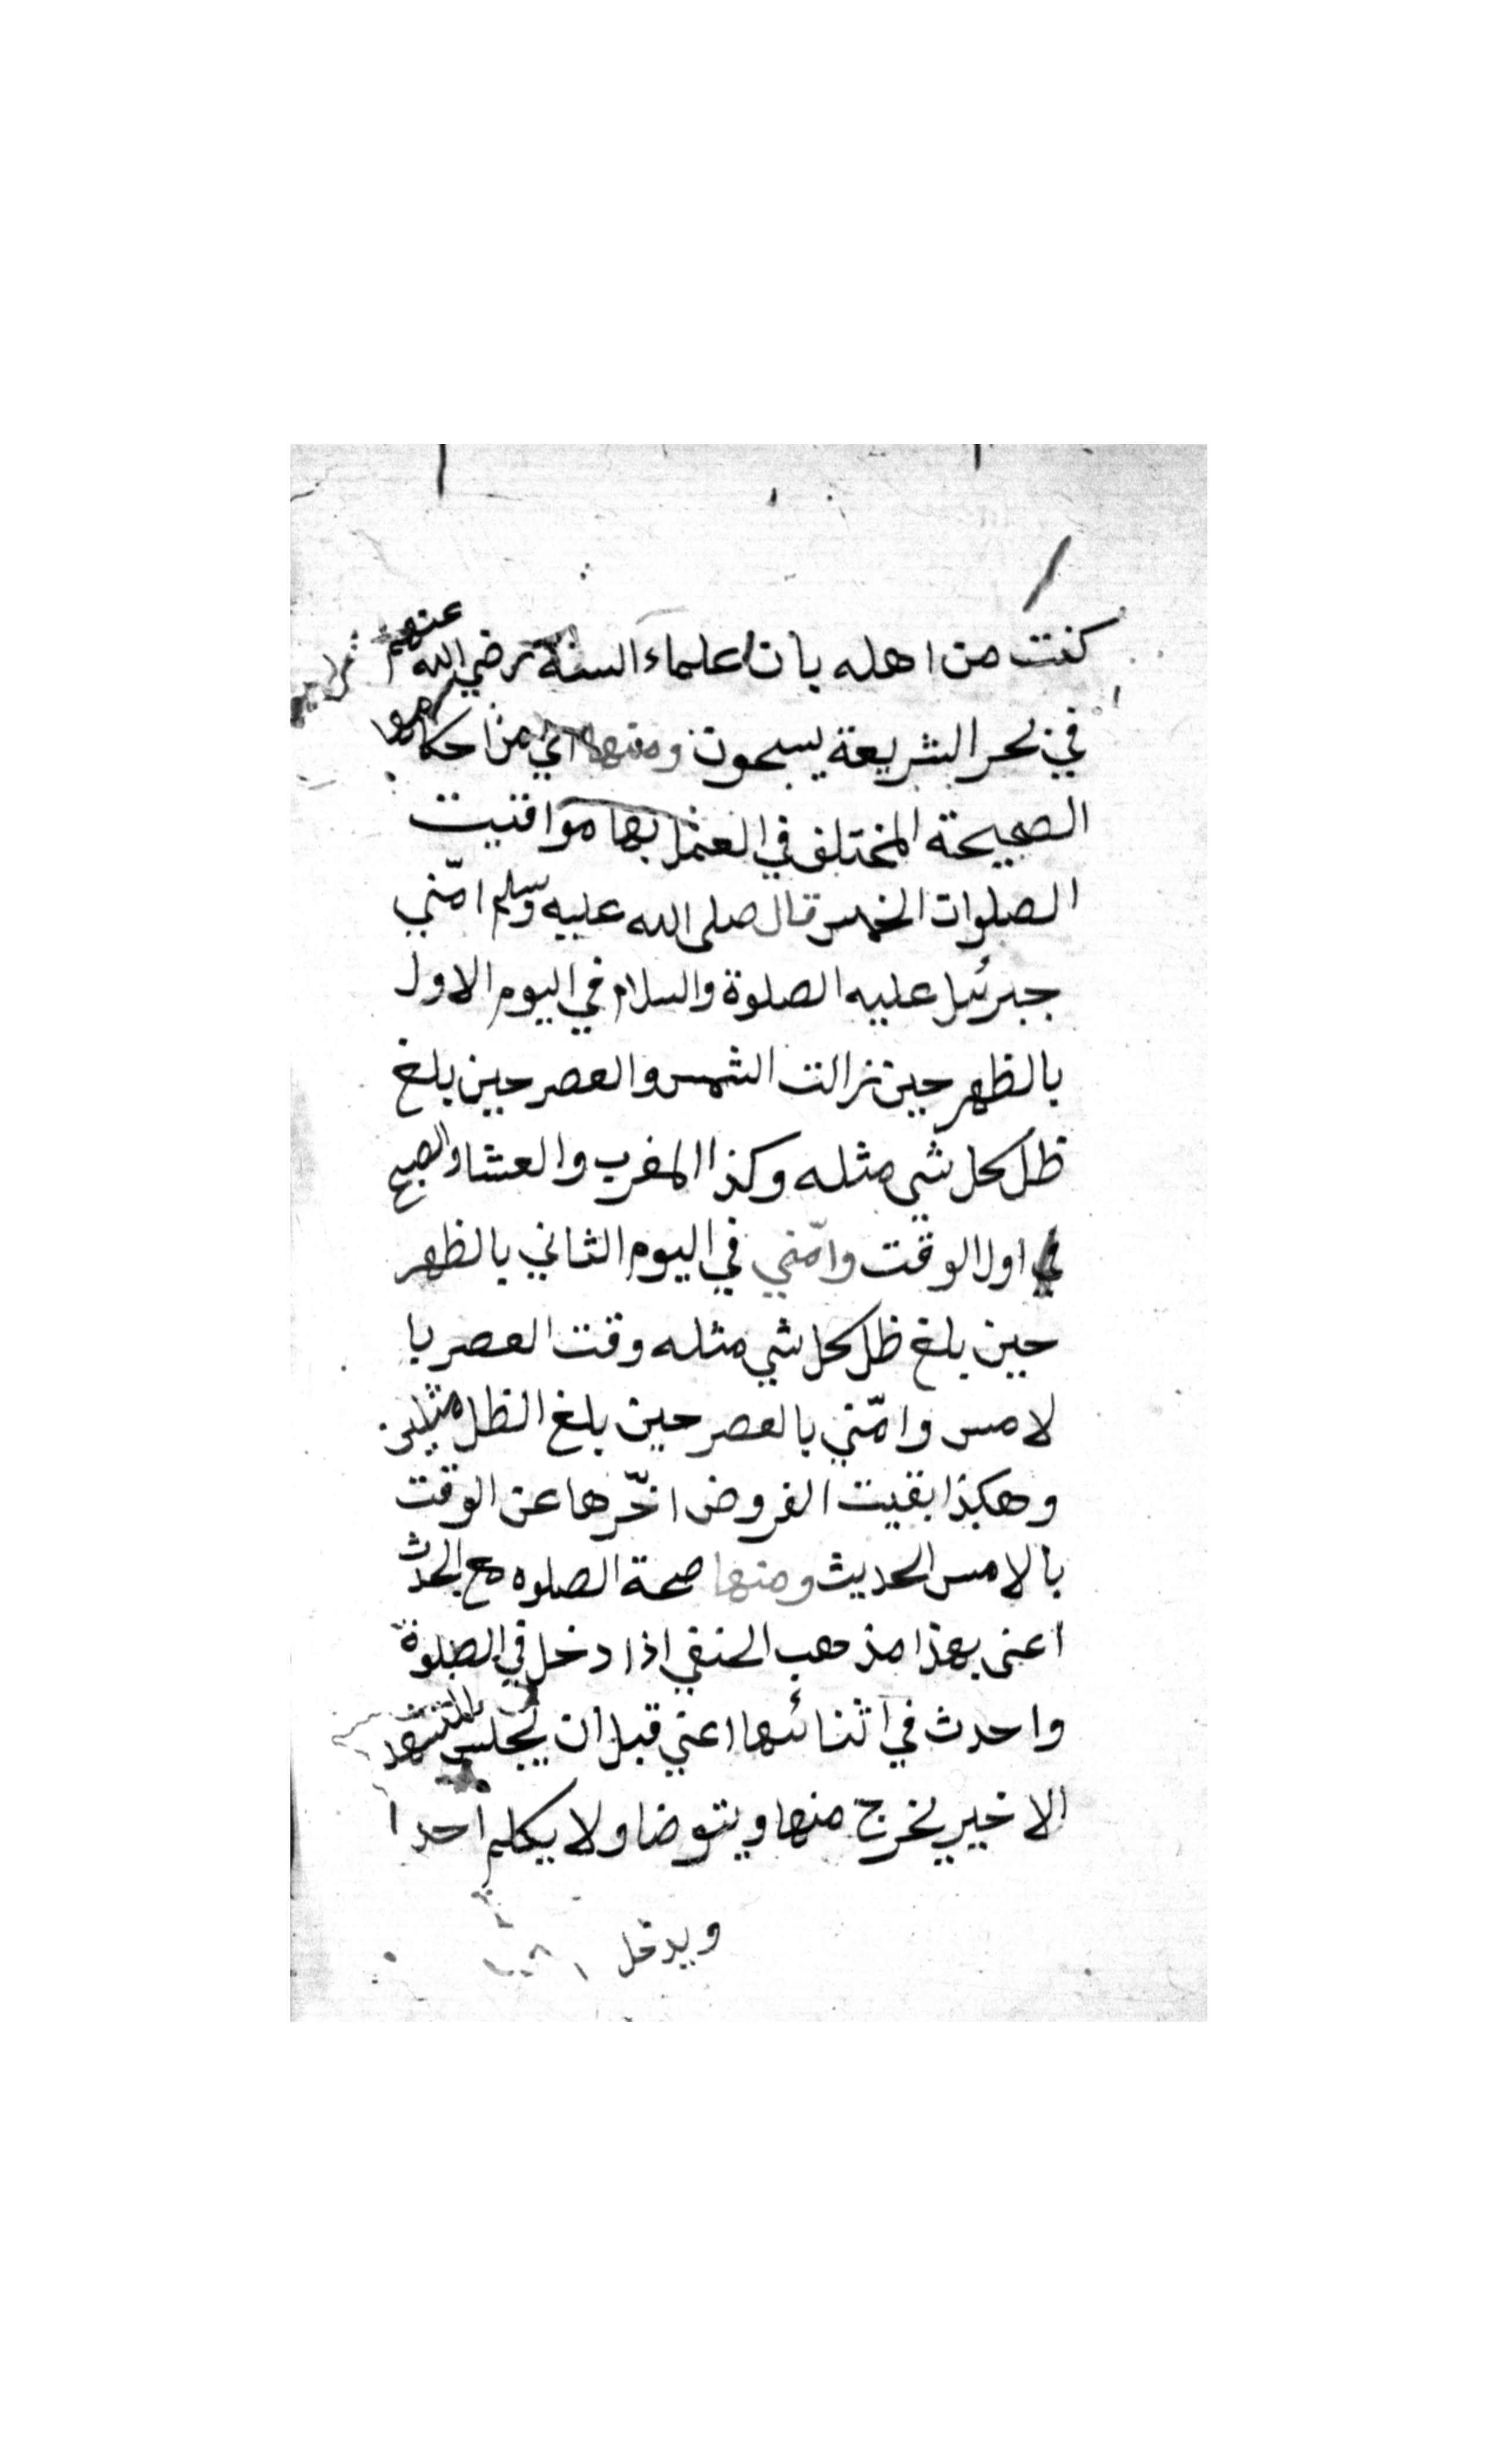 كنت من اهله بان علماء السنة رضي الله عنهم
في بحر الشريعة يسبحون ومنها اي من احكامها
الصحيحة المختلف في العمل بها مواقتيت
الصلوات الخمس قال صلى الله عليه وسلم امّني
جبرئيل عليه الصلوة والسلام في اليوم الاول
بالظهر حين زالت الشمس والعصر حين بلغ
ظل كل شي مثله وكذا المغرب والعشا والصبح
في اول الوقت وامّني في اليوم الثاني بالظهر
حين بلغ ظل كل شي مثله وقت العصر با
لامس وامّني بالعصر حين بلغ الظل مثلين
وهكذا بقيت الفروض اخّرها عن الوقت
بالامس الحديث ومنها صحة الصلوه مع الحدث
اعنى بهذا مذهب الحنفي اذا دخل في الصلوة
واحدث في اثنائها اعني قبل ان يجلس للتشهد
الاخير يخرج منها ويتوضا ولا يكلم احدا
ويدخل